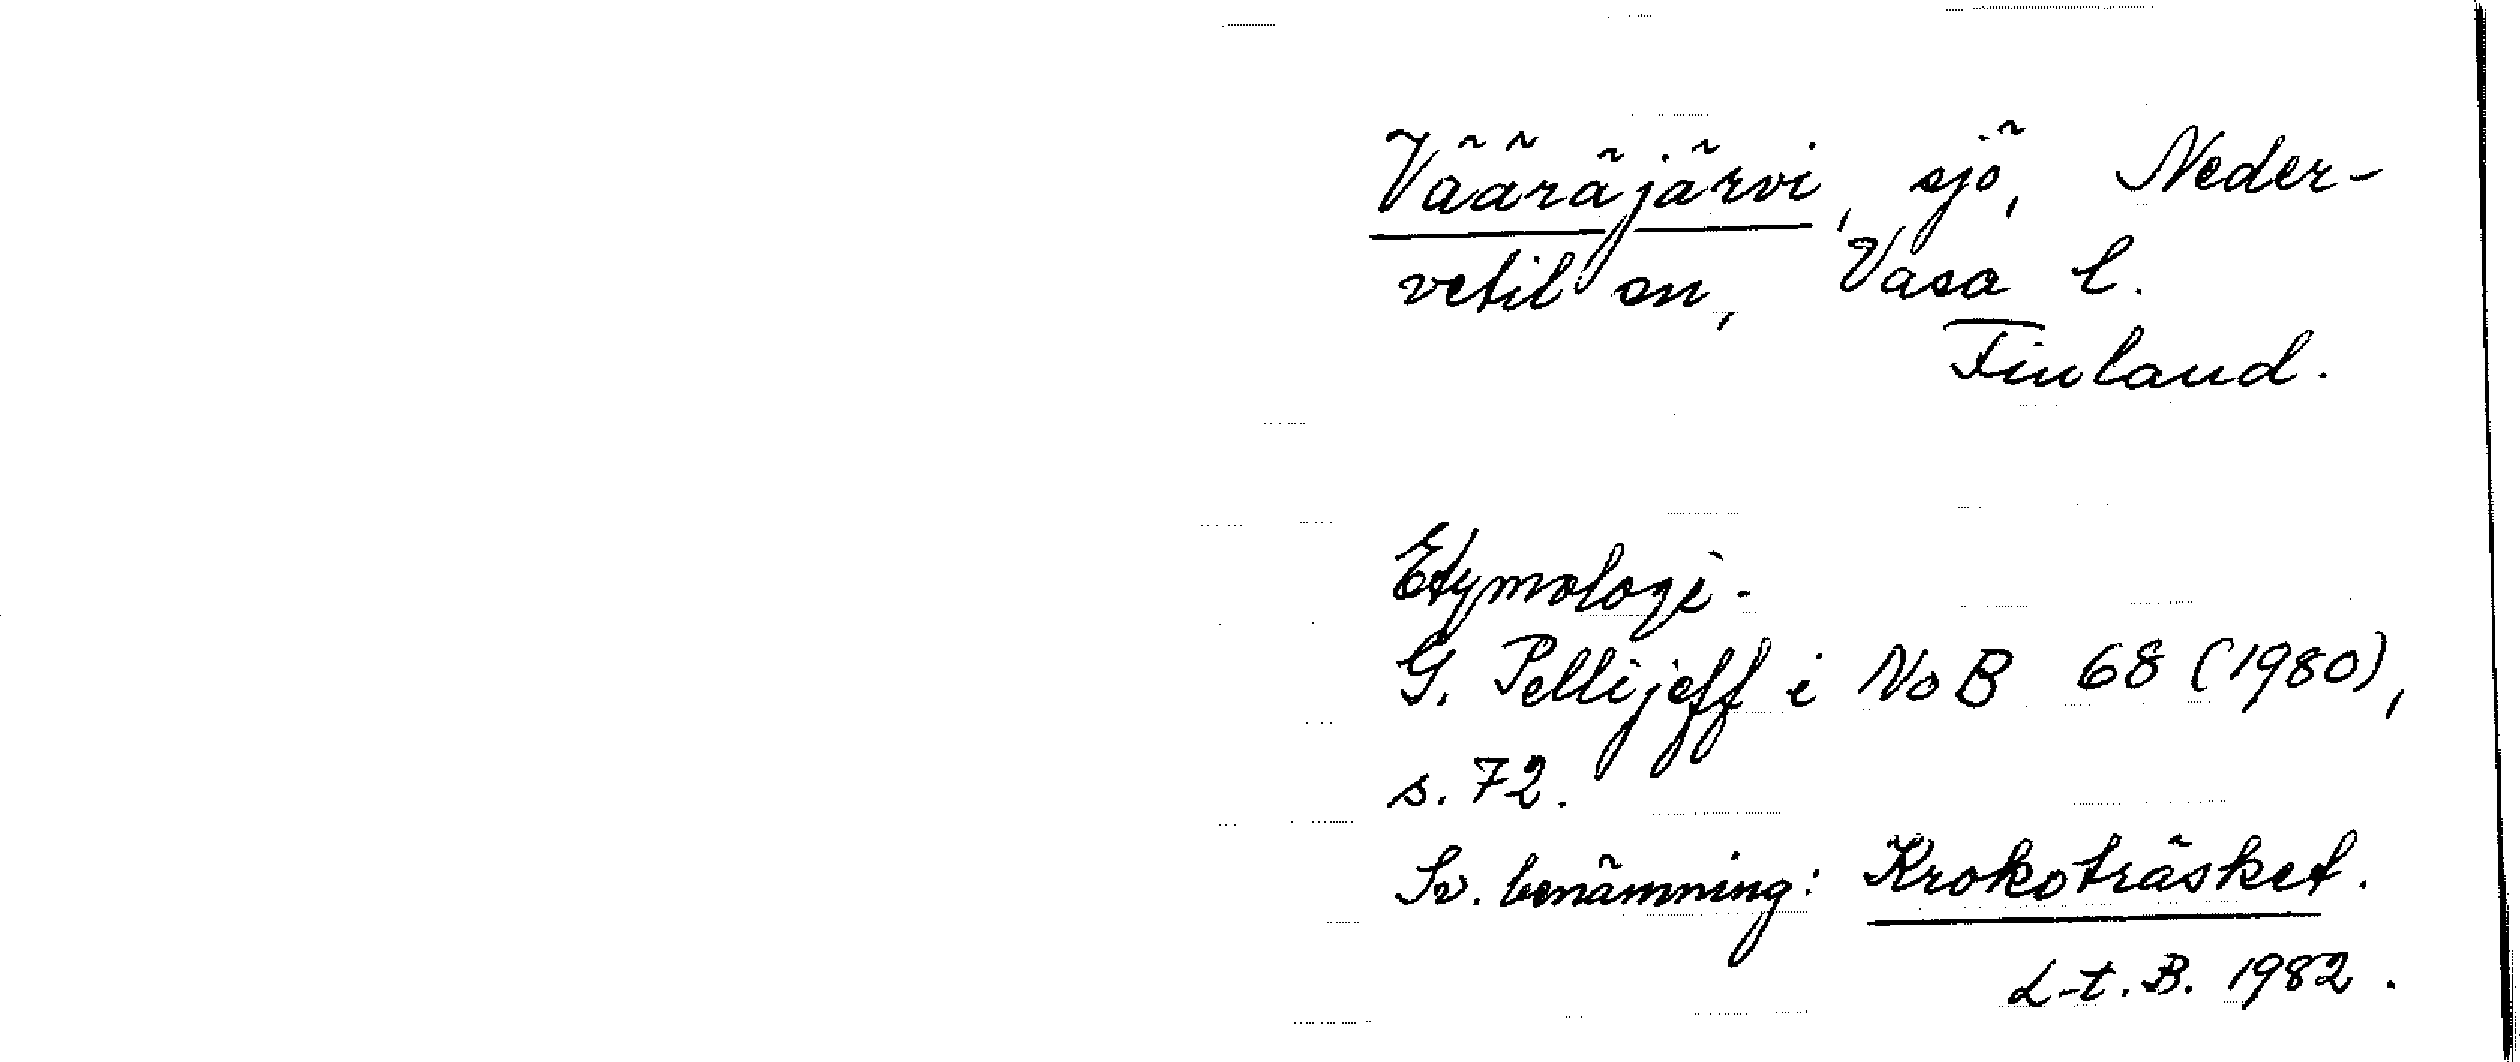 Vääräjärvi, sjö, Neder-
vetil sn, Vasa l.
Finland.
Etymologi.
G. Pellijeff i NoB 68 (1980),
s. 72.
Sv. benämning: Krokoträsket.
L-t. B. 1982.